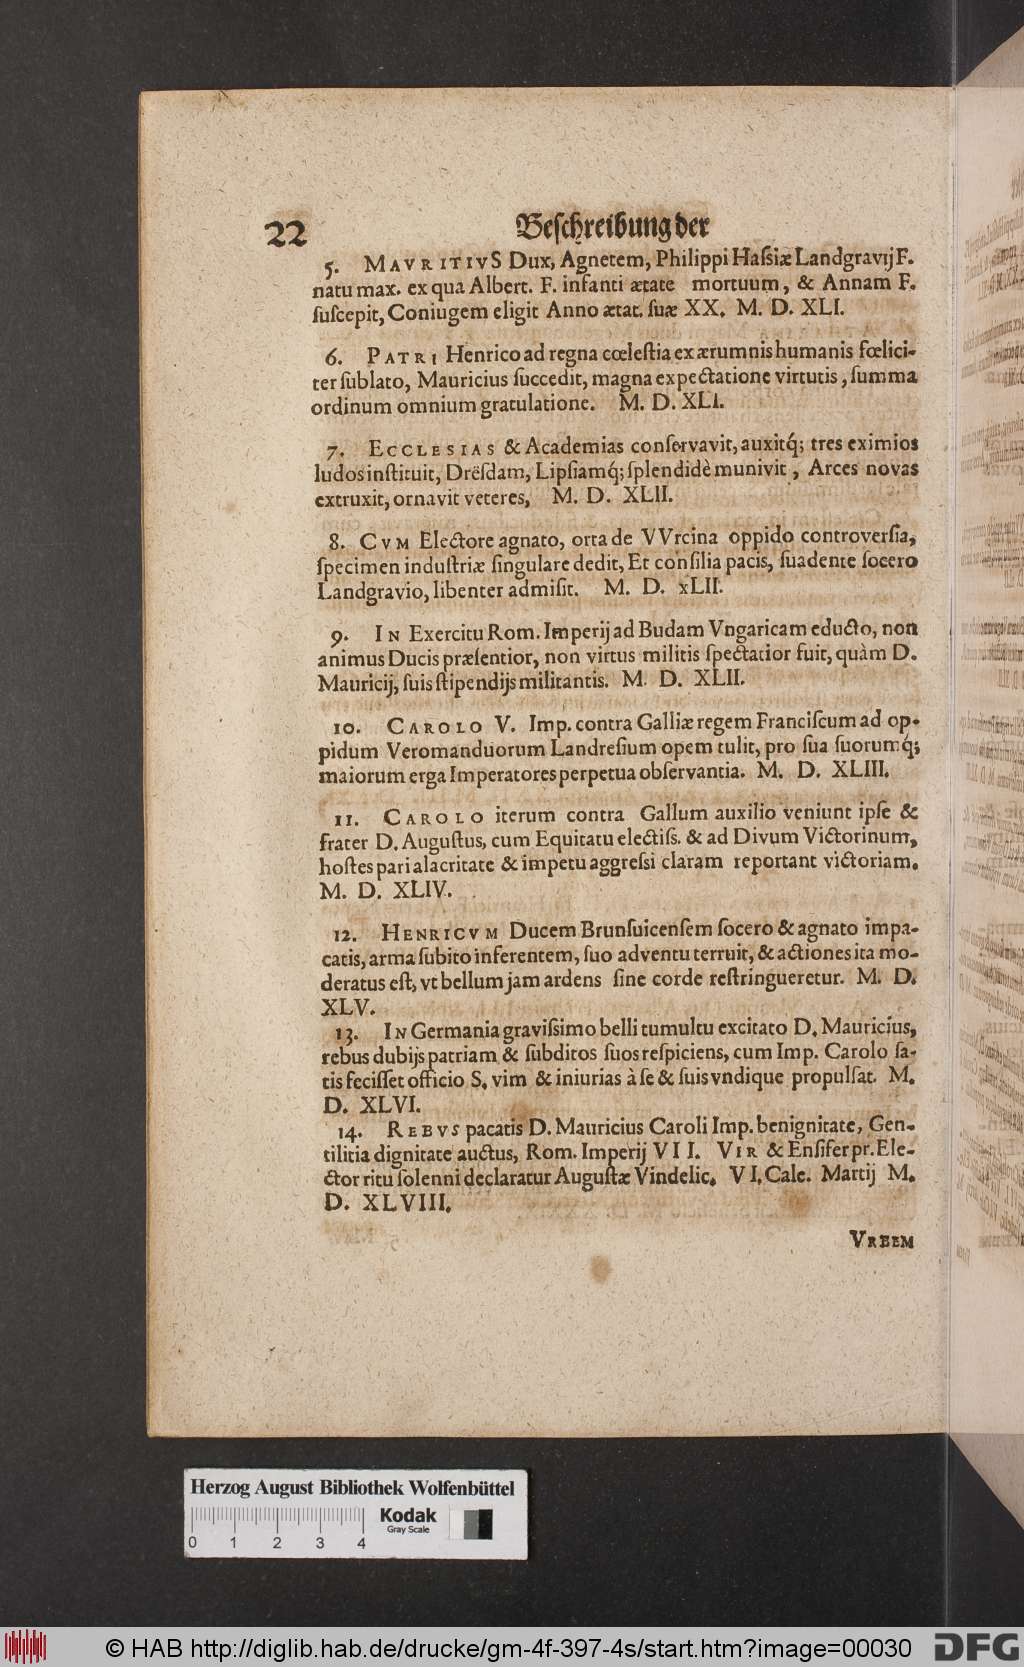 22 Beſchreibung der
5. MAVRITIVS Dux, Agnetem, Philippi Haſsiæ Landgravij F.
natu max. ex qua Albert. F. infanti ætate mortuum, & Annam F.
ſuſcepit, Coniugem eligit Anno ætat. ſuæ XX. M. D. XLI.
6. PATRI Henrico ad regna cœleſtia ex ærumnis humanis fœlici-
ter ſublato, Mauricius ſuccedit, magna expectatione virtutis, ſumma
ordinum omnium gratulatione. M. D. XLI.
7. ECCLESIAS & Academias conſervavit, auxitq́; tres eximios
ludos inſtituit, Dreſdam, Lipſiamq́; ſplendidè munivit, Arces novas
extruxit, ornavit veteres, M. D. XLII.
8. CVM Electore agnato, orta de VVrcina oppido controverſia,
ſpecimen induſtriæ ſingulare dedit, Et conſilia pacis, ſuadente ſocero
Landgravio, libenter admiſit. M. D. xLII.
9. IN Exercitu Rom. Imperij ad Budam Vngaricam educto, non
animus Ducis præſentior, non virtus militis ſpectatior fuit, quàm D.
Mauricij, ſuis ſtipendijs militantis. M. D. XLII.
10. CAROLO V. Imp. contra Galliæ regem Franciſcum ad op-
pidum Veromanduorum Landreſium opem tulit, pro ſua ſuorumq́;
maiorum erga Imperatores perpetua obſervantia. M. D. XLIII.
11. CAROLO iterum contra Gallum auxilio veniunt ipſe &
frater D. Auguſtus, cum Equitatu electiſs. & ad Divum Victorinum,
hoſtes pari alacritate & impetu aggreſsi claram reportant victoriam.
M. D. XLIV.
12. HENRICVM Ducem Brunſuicenſem ſocero & agnato impa-
catis, arma ſubito inferentem, ſuo adventu terruit, & actiones ita mo-
deratus eſt, vt bellum jam ardens ſine corde reſtringueretur. M. D.
XLV.
13. IN Germania graviſsimo belli tumultu excitato D. Mauricius,
rebus dubijs patriam & ſubditos ſuos reſpiciens, cum Imp. Carolo ſa-
tis feciſſet officio S. vim & iniurias à ſe & ſuis vndique propulſat. M.
D. XLVI.
14. REBVS pacatis D. Mauricius Caroli Imp. benignitate, Gen-
tilitia dignitate auctus, Rom. Imperij VII. VIR & Enſifer pr. Ele-
ctor ritu ſolenni declaratur Auguſtæ Vindelic. VI. Cale. Martij M.
D. XLVIII.
VREEM
Herzog August Bibliothek Wolfenbüttel
Kodak
Gray Scale
0 1 2 3 4
© HAB http://diglib.hab.de/drucke/gm-4f-397-4s/start.htm?image=00030 DFG